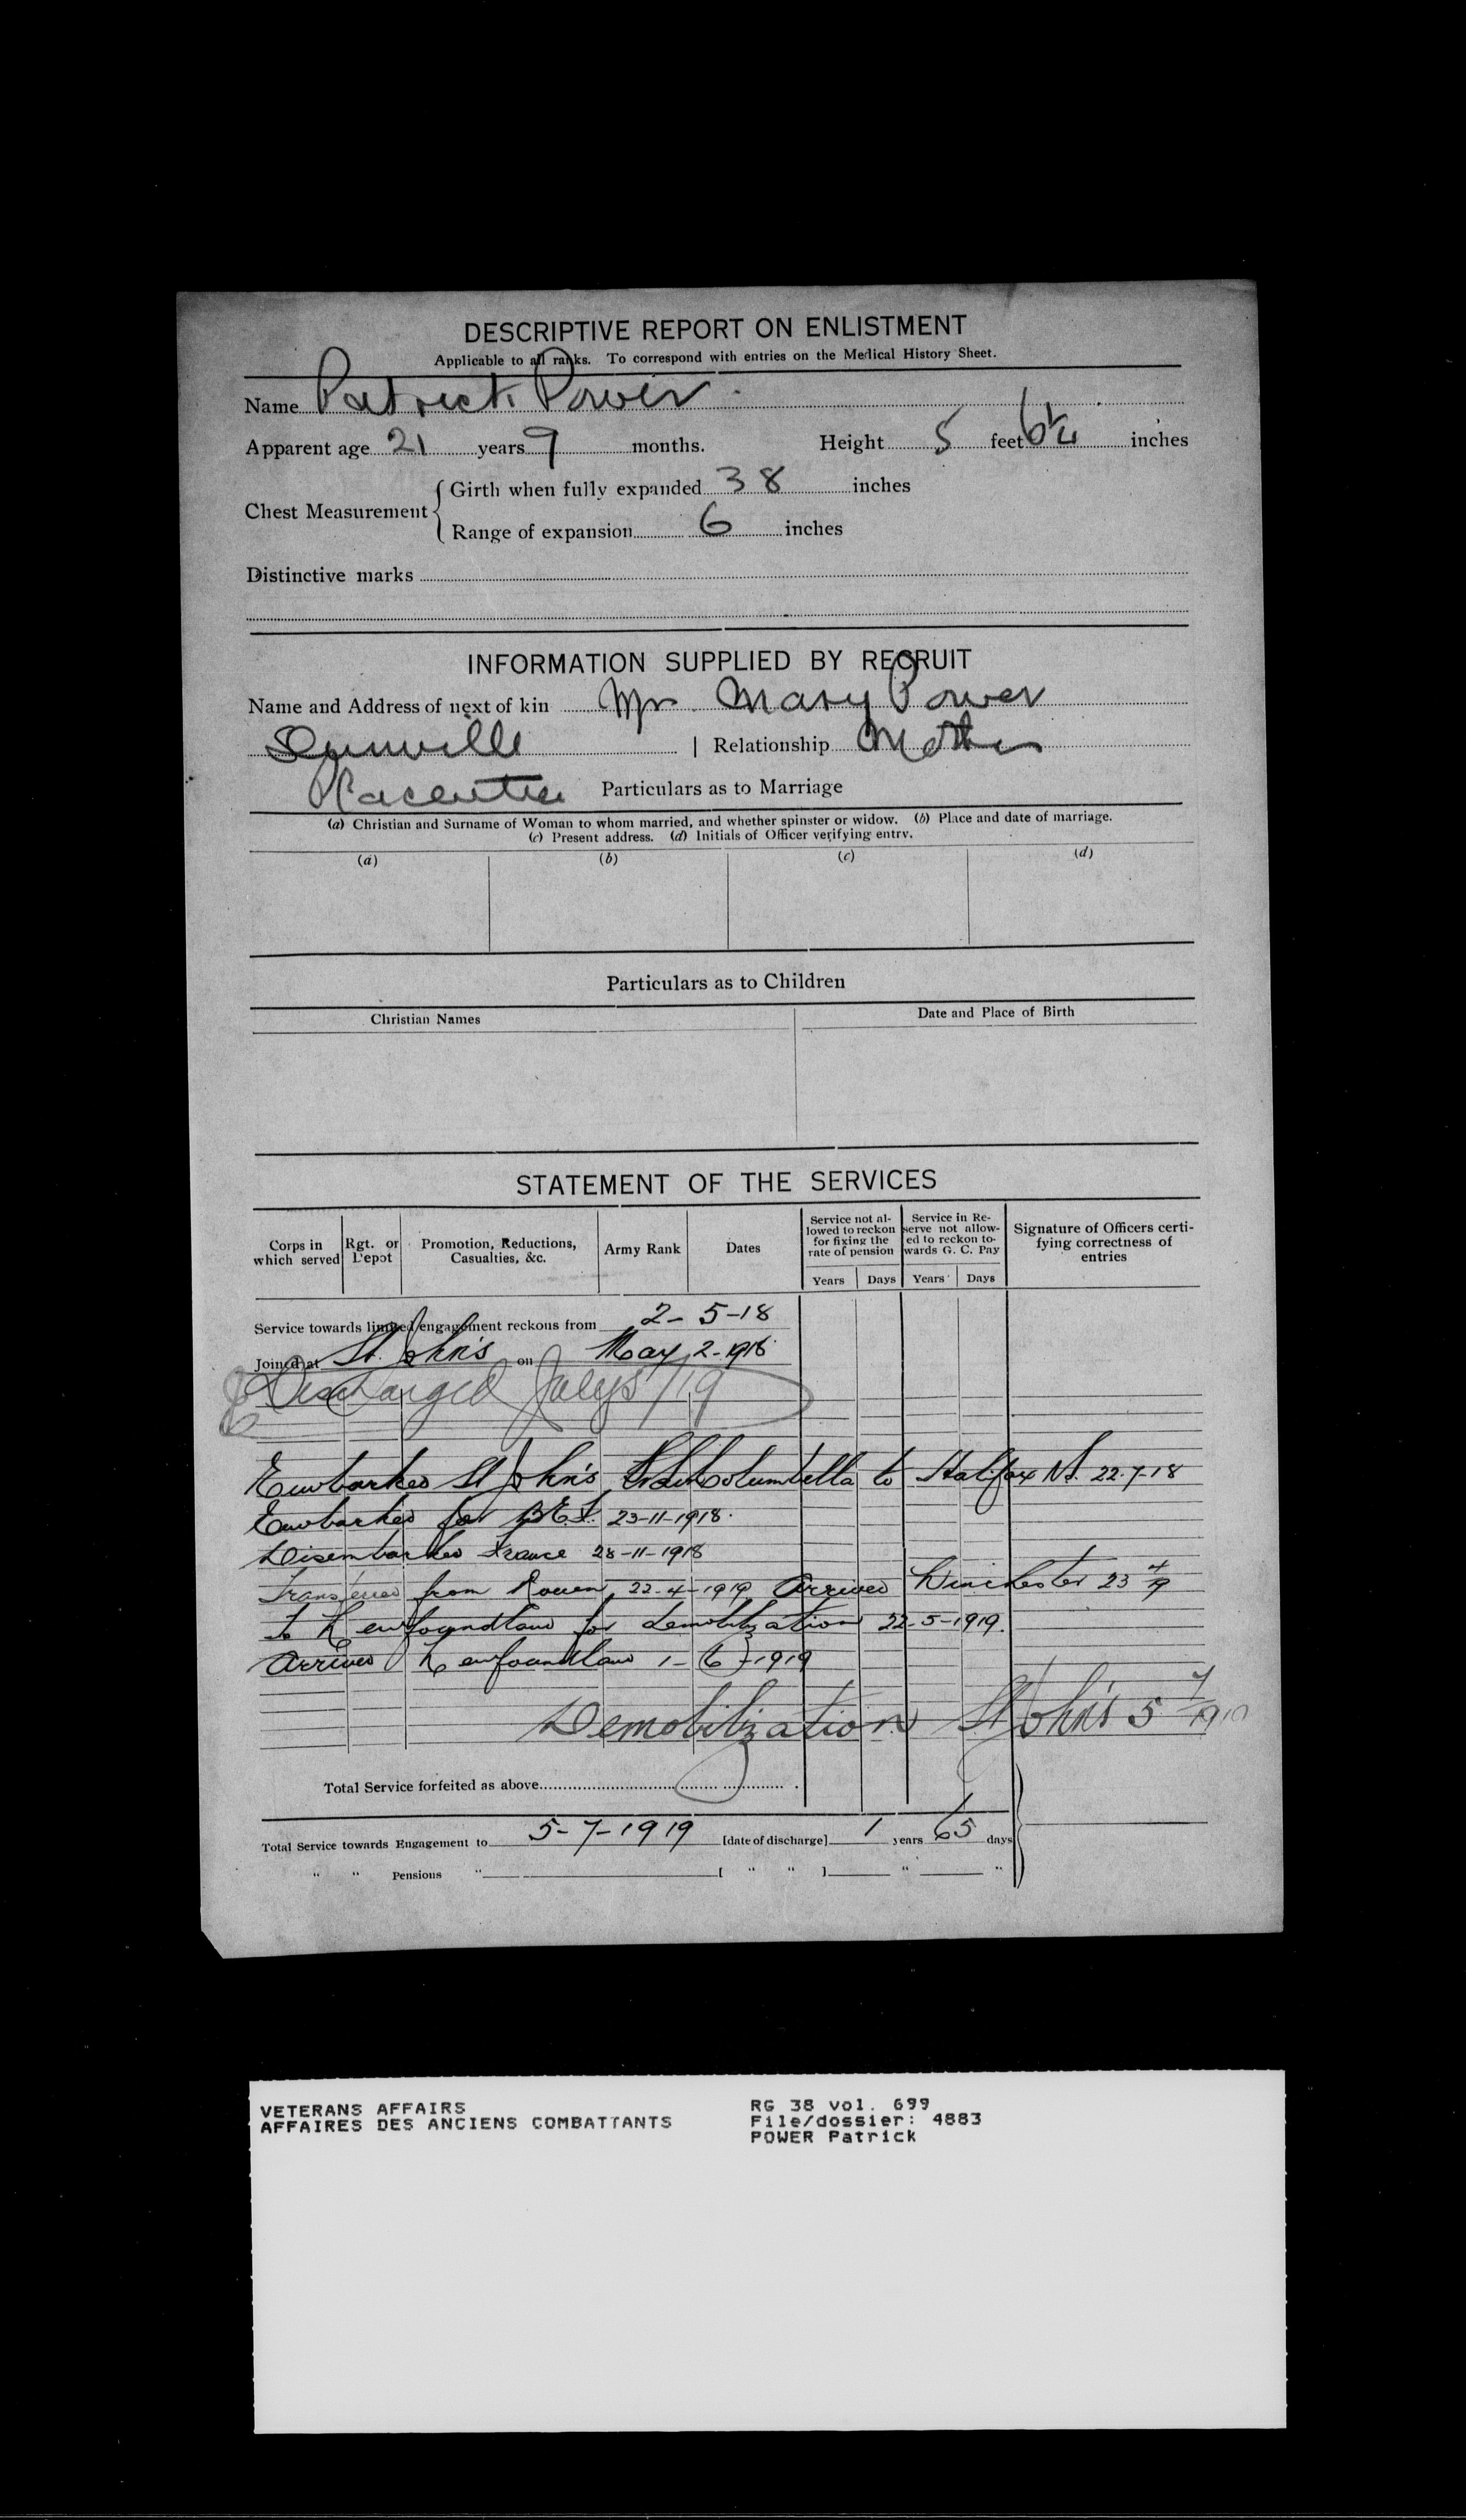 DESCRIPTIVE REPORT ON ENLISTMENT
Applicable to all ranks. To correspond with entries on the Medical History Sheet.
Name Patrick Power
Apparent age 21 years 9 months. Height 5 feet 6 1/4 inches
Chest Measurement { Girth when fully expanded 38 inches
Range of expansion 6 inches
Distinctive marks
INFORMATION SUPPLIED BY RECRUIT
Name and Address of next of kin Mrs Mary Power
| Relationship Mother
Placentia Particulars as to Marriage
(a) Christian and Surname of Woman to whom married, and whether spinster or widow. (b) Place and date of marriage.
(c) Present address. (d) Initials of Officer verifying entry.
(a) (b) (c) (d)
Particulars as to Children
Christian Names Date and Place of Birth
STATEMENT OF THE SERVICES
Corps in which served Rgt. or Depot Promotion, Reductions, Casualties, &c. Army Rank Dates Service not allowed to reckon for fixing the rate of pension Service in Reserve not allowed to reckon towards G. C. Pay Signature of Officers certifying correctness of entries
Years Days Years Days
Service towards limited engagement reckons from 2-5-18
Joined at St. John's on May 2-1918
Discharged July 5/19
Embarked St John's Columbella to Halifax N.S. 22-7-18
Embarked for B.E.F. 23-11-1918.
Disembarked France 28-11-1918
Transferred from Rouen 22-4-1919 Arrived Winchester 23 4/19
To Newfoundland for demobilization 22-5-1919.
Arrived Newfoundland 1-(6)-1919
Demobilization St John's 5 7/1919
Total Service forfeited as above
Total Service towards Engagement to 5-7-1919 [date of discharge] 1 years 65 days
" " Pensions " [ " " ] " "
VETERANS AFFAIRS
AFFAIRES DES ANCIENS COMBATTANTS
RG 38 vol. 699
File/dossier: 4883
POWER Patrick